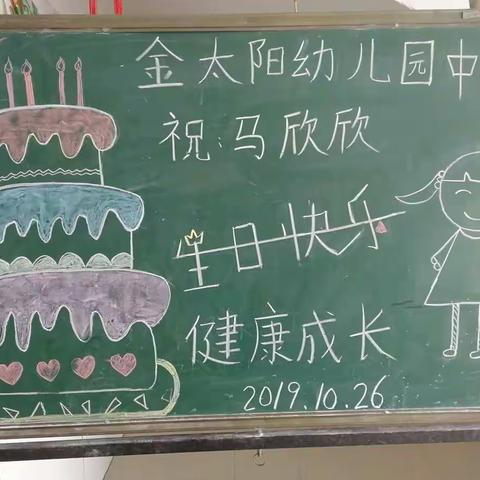 金太阳幼儿园中
祝:马欣欣
生日快乐
健康成长
2019.10.26